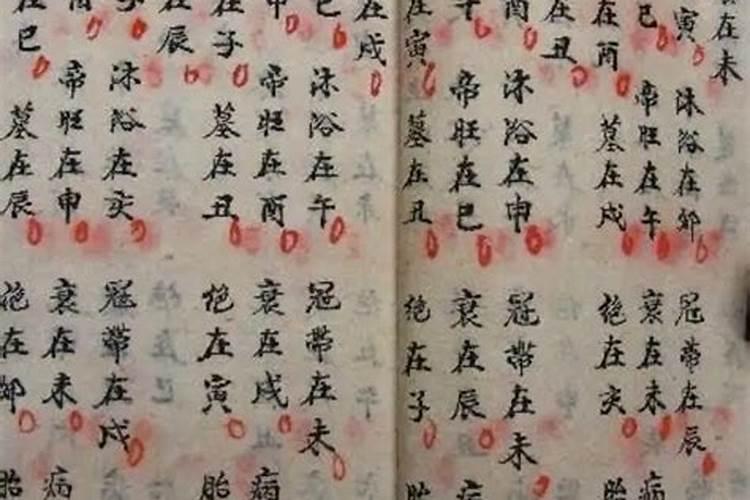 在未
寅
巳
在酉
在丑
酉
在寅
沐浴在卯
帝旺在午
墓在戌
沐浴在申
帝旺在巳
墓在丑
冠帶在辰
衰在未
絶在亥
冠帶在未
衰在辰
絶在子
病
胎
病
胎
在戌
巳
申
在子
在辰
在巳
沐浴在午
帝旺在酉
墓在丑
沐浴在亥
帝旺在申
墓在辰
冠帶在未
衰在戌
絶在寅
冠帶在戌
衰在未
絶在卯
病
胎
病
胎